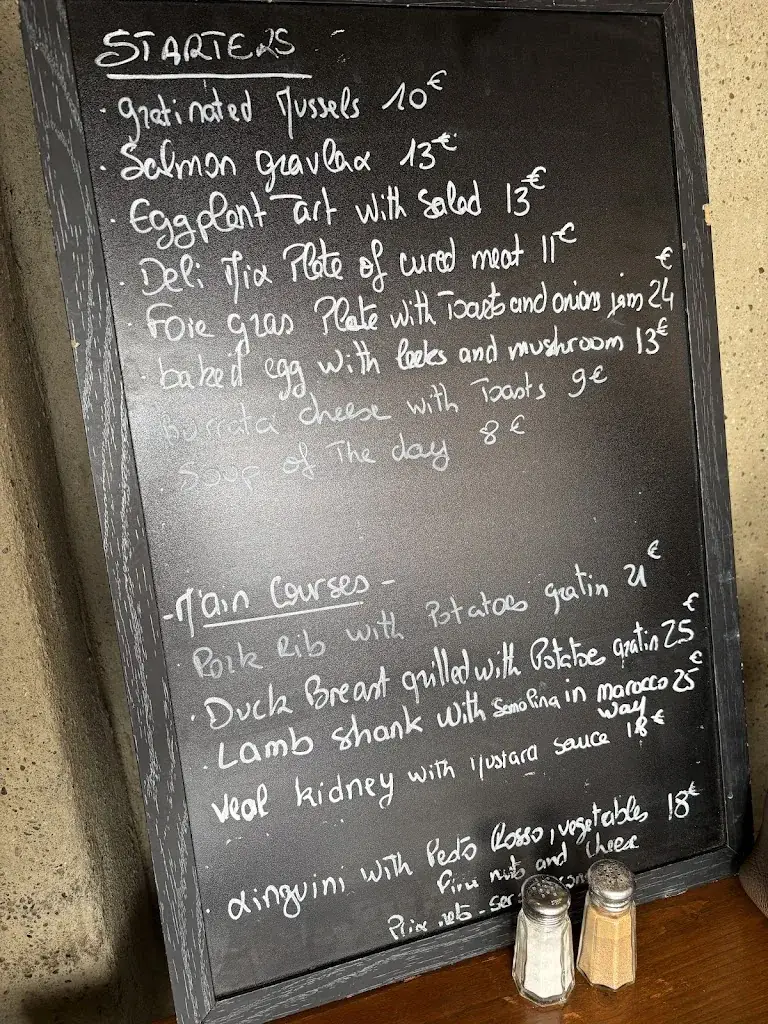 STARTERS
· gratinated Mussels 10€
· Salmon gravlax 13€
· Eggplant Tart with Salad 13€
· Deli Mix Plate of cured meat 11€
· Foie gras Plate with Toasts and onions jam 24€
· baked egg with leeks and mushroom 13€
burrata cheese with Toasts 9€
Soup of The day 8€
- Main Courses -
· Pork Rib with Potatoes gratin 21€
· Duck Breast grilled with Potatoe gratin 25€
· Lamb shank with Semolina in marocco 25€
way
Veal kidney with Mustard sauce 18€
· Linguini with Pesto Rosso, vegetables 18€
Pine nuts and cheese
Prix nets